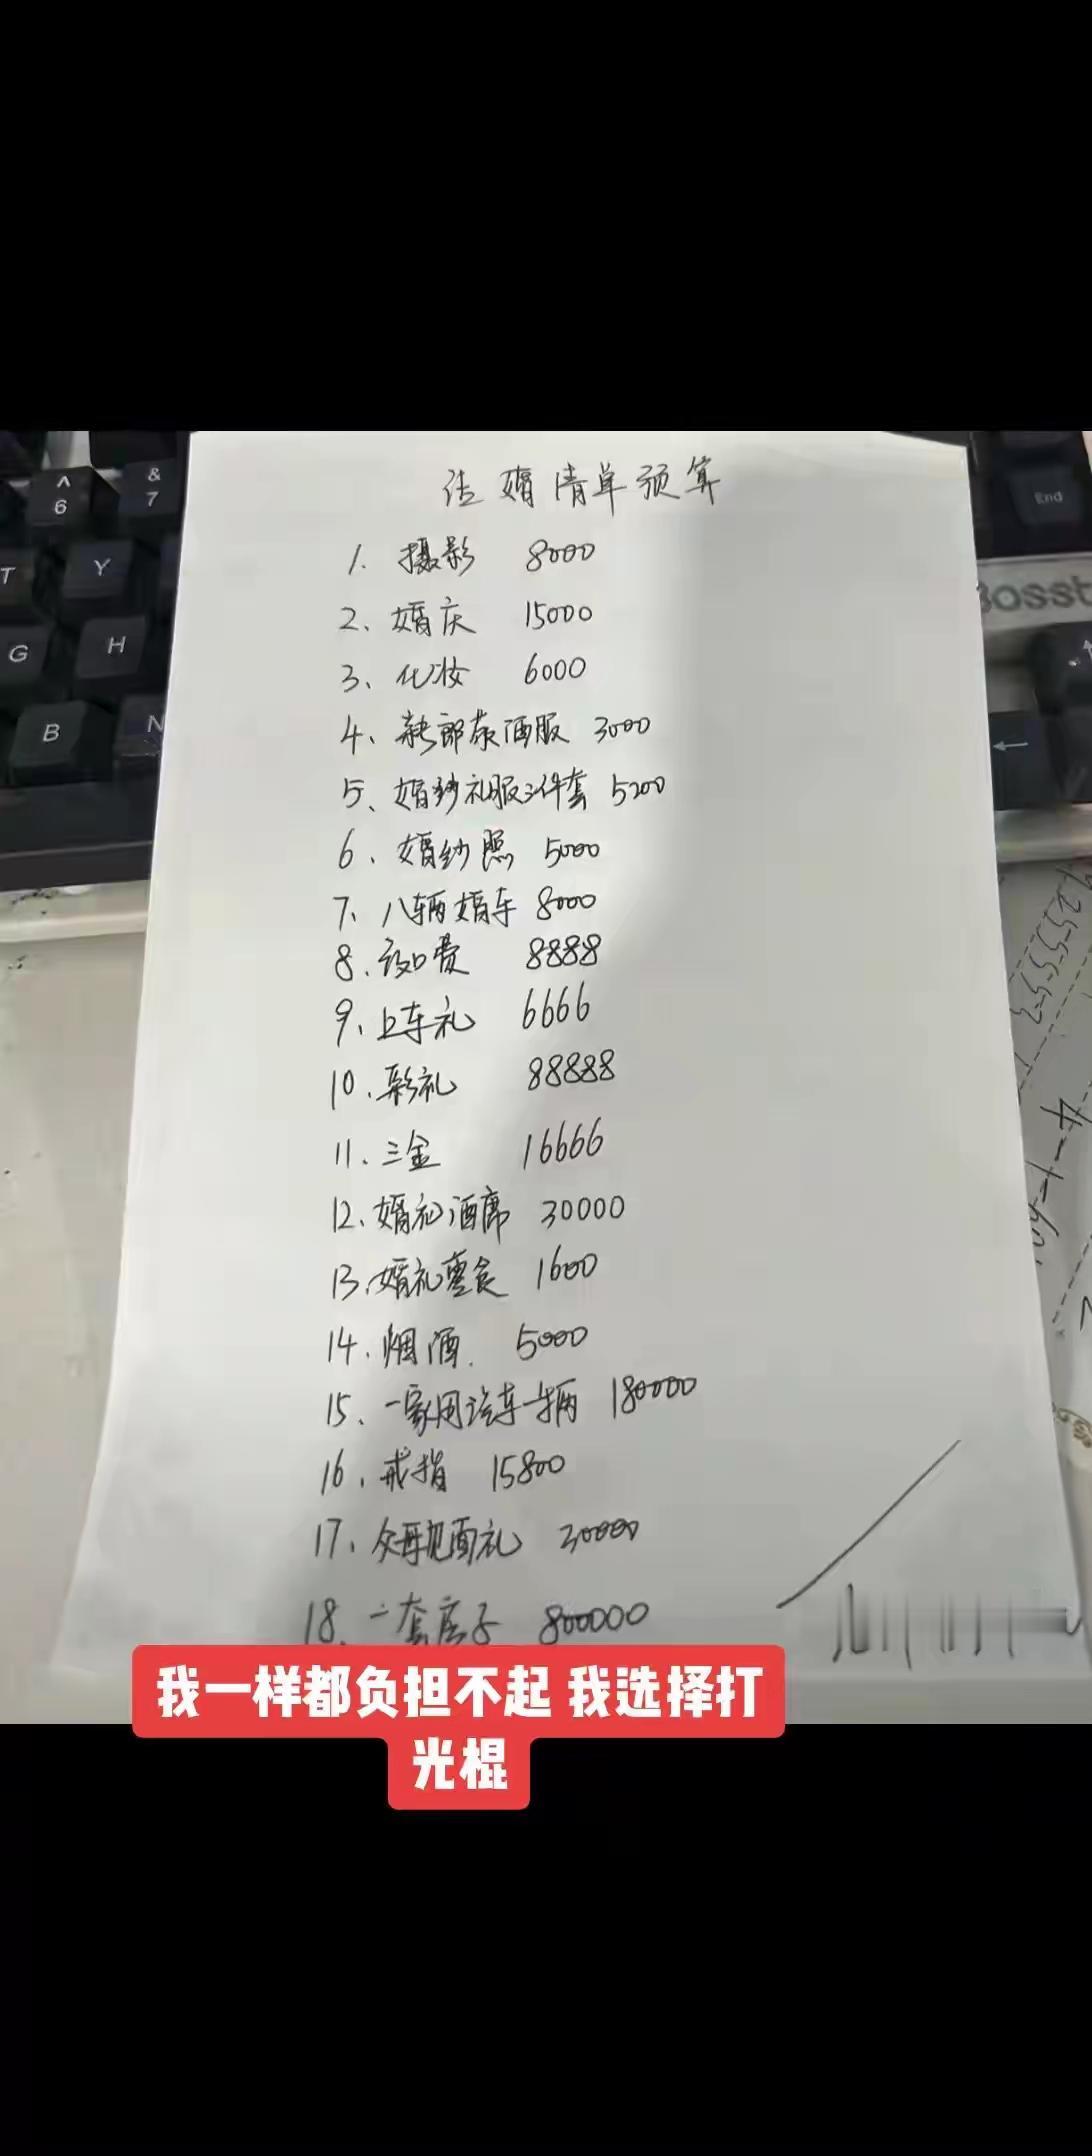 结婚清单预算
1. 摄影 8000
2、婚庆 15000
3、化妆 6000
4、新郎敬酒服 3000
5、婚纱礼服三件套 5200
6、婚纱照 5000
7、八辆婚车 8000
8.改口费 8888
9、上车礼 6666
10.彩礼 88888
11、三金 16666
12、婚礼酒席 30000
13、婚礼零食 1600
14.烟酒. 5000
15、一家用汽车一辆 180000
16.戒指 15800
17、父母见面礼 30000
18、一套房子 800000
我一样都负担不起 我选择打
光棍
^
6
&
7
T
Y
G
H
B
N
End
←